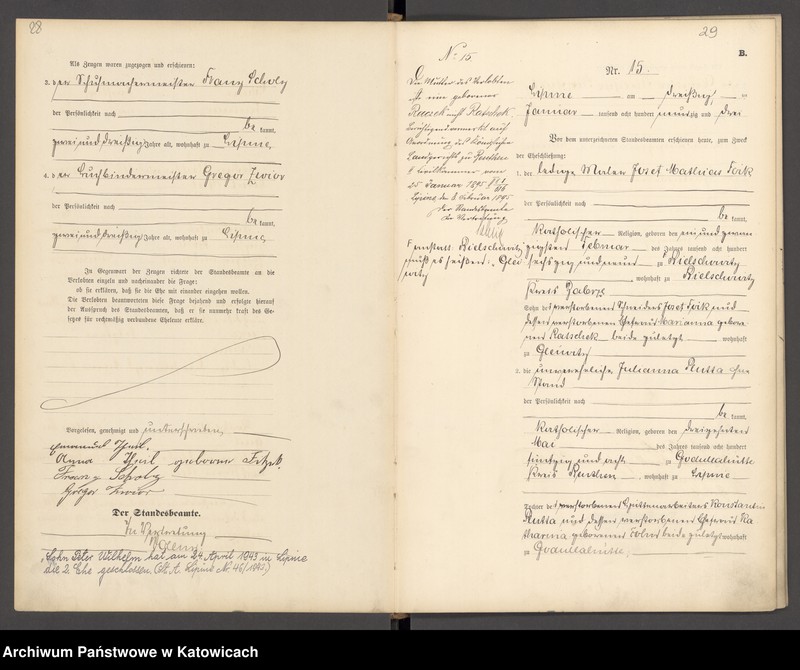 28
Als Zeugen waren zugezogen und erschienen:
3. der Schuhmachermeister Franz Scholz
der Persönlichkeit nach
be kannt,
zwei und dreißig Jahre alt, wohnhaft zu Lipine
4. der Buchbindermeister Gregor
der Persönlichkeit nach
be kannt,
zwei und dreißig Jahre alt, wohnhaft zu Lipine
In Gegenwart der Zeugen richtete der Standesbeamte an die
Verlobten einzeln und nacheinander die Frage:
ob sie erklären, daß sie die Ehe mit einander eingehen wollen.
Die Verlobten beantworteten diese Frage bejahend und erfolgte hierauf
der Ausspruch des Standesbeamten, daß er sie nunmehr kraft des Ge-
setzes für rechtmäßig verbundene Eheleute erkläre.
Vorgelesen, genehmigt und unterschrieben,
Emanuel
Anna geborene
Franz Scholz
Gregor
Der Standesbeamte.
In Vertretung
Sohn Peter Wilhelm hat am 24. April 1943 in Lipine
die 2. Ehe geschlossen. (St. A. Lipine Nr. 46/1943)
29
B.
No 15
Die Mutter des Verlobten
ist eine geborene
nicht Ratschek
auf
Anordnung des Königlichen
Landgerichts zu Beuthen
vom
25 Januar 1895
Lipine den Februar 1895
Der Standesbeamte
In Vertretung
anstatt Bielschowitz
muß es heißen: "Glei
witz
Nr. 15.
Lipine am dreißigsten
Januar tausend acht hundert neunzig und drei
Vor dem unterzeichneten Standesbeamten erschienen heute, zum Zweck
der Eheschließung:
1. der ledige Maler Josef Mathias
der Persönlichkeit nach
be kannt,
katholischer Religion, geboren den ein und zwan
zigsten Februar des Jahres tausend acht hundert
sechszig und neun zu Bielschowitz
, wohnhaft zu Bielschowitz
Kreis Zabrze
Sohn des verstorbenen Schneiders Josef und
dessen verstorbenen Ehefrau Marianna gebore
nen Ratschek beide zuletzt wohnhaft
zu Gleiwitz
2. die unverehelichte Julianna Rutta ohne
Stand
der Persönlichkeit nach
be kannt,
katholischer Religion, geboren den dreizehnten
Mai des Jahres tausend acht hundert
fünfzig und acht zu Godullahütte
Kreis Beuthen, wohnhaft zu Lipine
Tochter des verstorbenen Hüttenarbeiters Konstantin
Rutta und dessen verstorbenen Ehefrau Ka
tharina geborenen beide zuletzt wohnhaft
zu Godullahütte.
Archiwum Państwowe w Katowicach